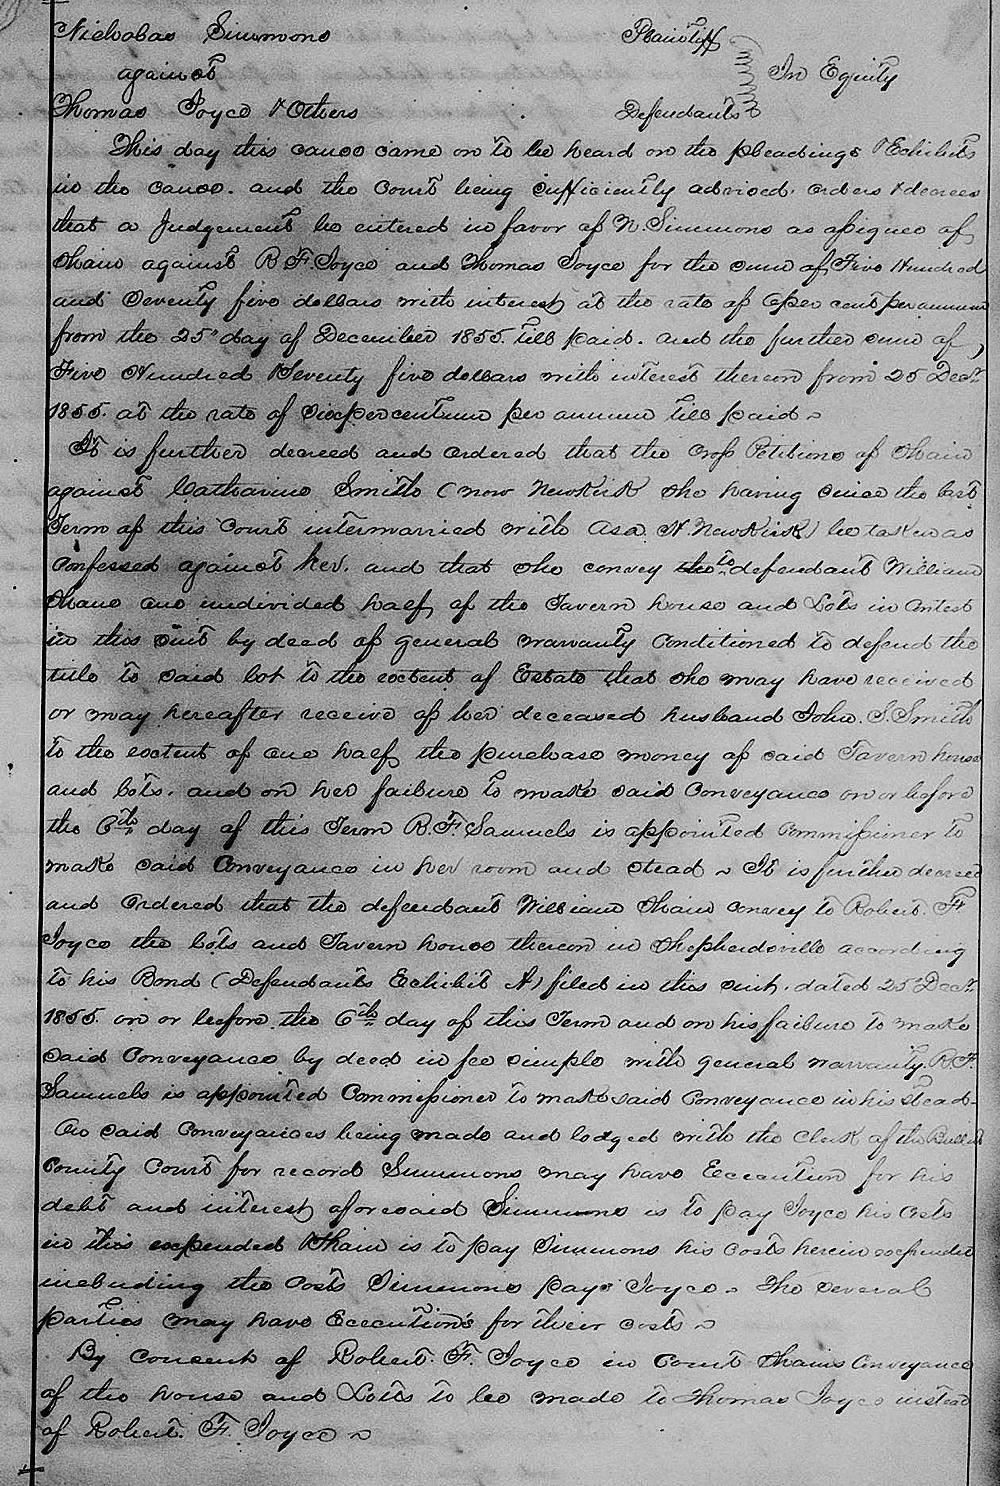 Nicholas Simmons Plaintiff
against In Equity
Thomas Joyce & Others Defendants
This day this cause came on to be heard on the pleadings & Exhibits
in the cause. and the court being sufficiently advised. orders & decrees
that a Judgement be entered in favor of N. Simmons as assignee of
Shain against R F Joyce and Thomas Joyce for the sum of Five Hundred
and Seventy five dollars with interest at the rate of 6 per cent per annum
from the 25" day of December 1855. till paid. and the further sum of
Five Hundred & Seventy five dollars with interest thereon from 25 Decr.
1855. at the rate of six per centum per annum till paid ~
It is further decreed and ordered that the cross Petitions of Shain
against Catharine Smith (now Newkirk she having since the last
Term of this Court intermarried with Asa. H. Newkirk) be taken as
Confessed against her. and that she convey to defendant William
Shane one undivided half of the Tavern house and Lots in Contest
in this suit by deed of general warranty Conditioned to defend the
title to said lot to the extent of Estate that she may have received
or may hereafter receive of her deceased husband John. S. Smith
to the extent of one half the purchase money of said Tavern house
and lots. and on her failure to make said Conveyance on or before
the 6th day of this Term R. F. Samuels is appointed Commissioner to
make said Conveyance in her room and stead ~ It is further decreed
and Ordered that the defendant William Shain convey to Robert. F
Joyce the lots and Tavern house thereon in Shepherdsville according
to his Bond (Defendants Exhibit A) filed in this suit. dated 25 Decr.
1855. on or before the 6th day of this Term and on his failure to make
said Conveyance by deed in fee simple with general warranty. R. F.
Samuels is appointed Commissioner to make said Conveyance in his stead -
On said Conveyances being made and lodged with the Clerk of the Bullitt
County Court for record Simmons may have Execution for his
debt and interest aforesaid Simmons is to pay Joyce his Costs
in this expended & Shain is to pay Simmons his costs herein expended
including the Costs Simmons pays Joyce. The several
parties may have Executions for their costs ~
By Consent of Robert. F. Joyce in Court Shains Conveyance
of the house and Lotts to be made to Thomas Joyce instead
of Robert. F. Joyce ~